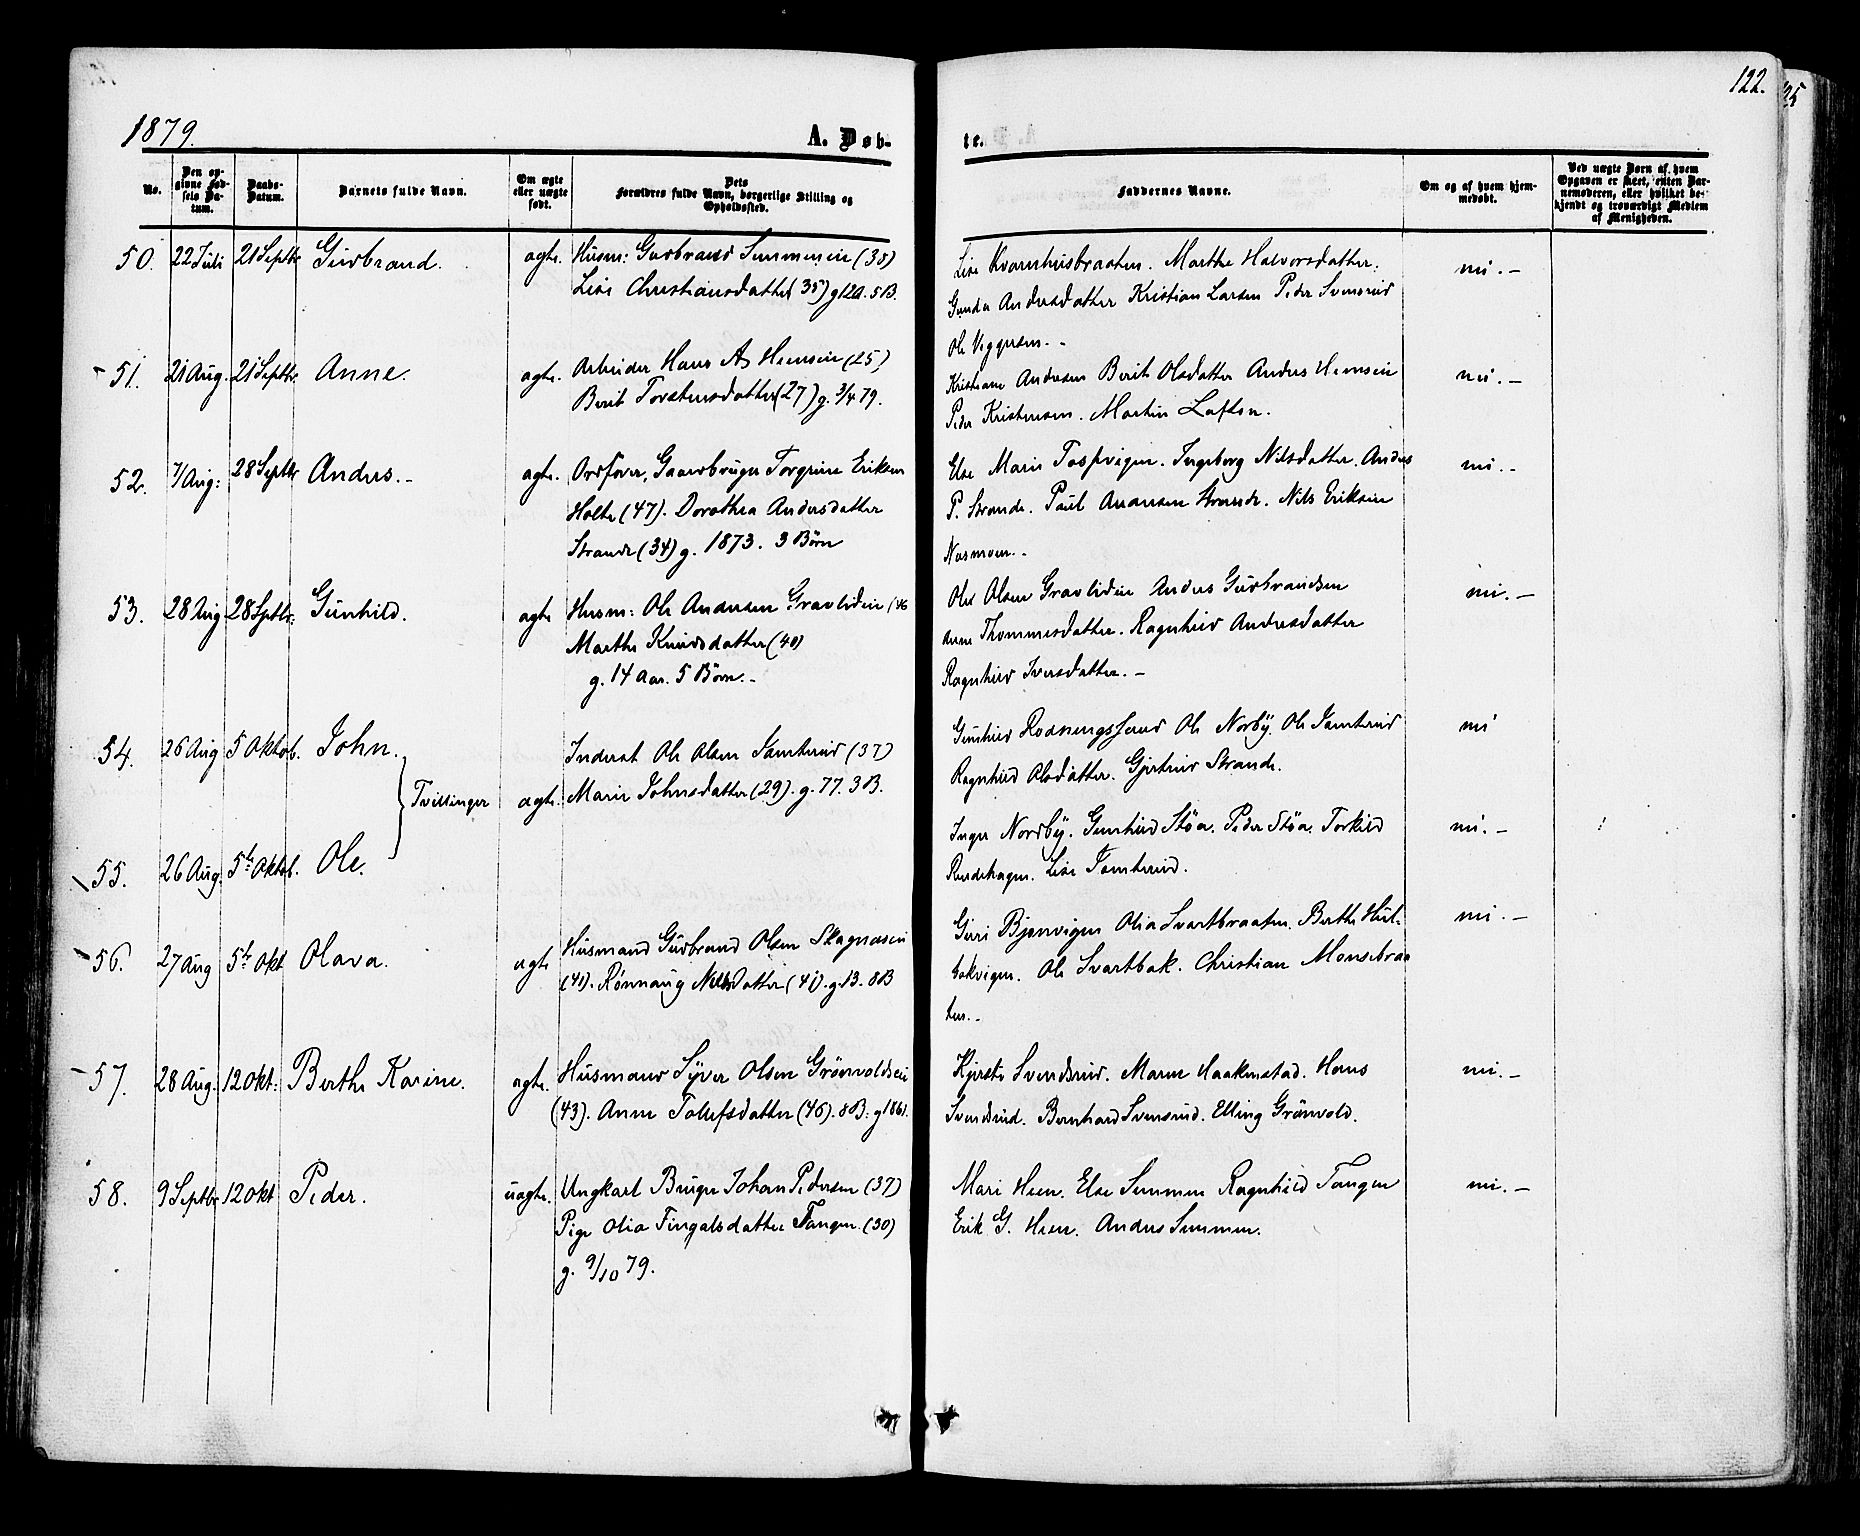 122.
125
1879.
A. Døb-
te.
No.
Den op-
givne Fød-
sels Da-
tum.
Daabs-
Datum.
Barnets fulde Navn.
Om ægte
eller uægte
født.
Dets
Forældres fulde Navn, borgerlige Stilling og
Opholdssted.
Faddernes Navne.
Om og af hvem hjem-
medøbt.
Ved uægte Børn af hvem
Opgaven er skeet, enten Bar-
nemoderen, eller hvilket be-
kjendt og troværdigt Medlem
af Menigheden.
50. 22 Juli 21 Septbr Gudbrand. ægte. Husm: Gudbrand Simmensein (38)
Lise Christiansdatter (35) g 12 a. 5 B.
Lise Kvarnhusbraaten. Marthe Halvorsdatter.
Gunda Andersdatter Kristian Larsen Peder Svensrud
Ole Viggersen. -
nei. -
51. 21 Aug. 21 Septbr. Anne. ægte. Arbeider Hans As Hiemsein (25)
Berit Torstensdatter (27) g. 3/4 79.
Kristiane Andersen Berit Olsdatter Anders Hiemsein
Peder Kristensen. Martin Lafton.
nei. -
52. 7/Aug: 28 Septbr Anders. - ægte. Ordfører, Gaardbruger Torgrim Eriksen
Holte (47). Dorothea Andersdatter
Strande (34) g. 1873. 3 Børn
Else Marie Tospvigen. Ingeborg Nilsdatter. Anders
P. Strande. Paul Amansen Strande. Nils Eriksen
Næsmoen. -
nei. -
53. 28 Aug 28 Septbr. Gunhild. ægte Husm: Ole Andersen Gravlidein (46
Marthe Knudsdatter (40)
g. 14 Aar. 5 Børn. -
Ole Olsen Gravlidein Anders Gudbrandsen
Anne Thommesdatter. Ragnhild Andersdatter
Ragnhild Iversdatter. -
nei. -
54. 26 Aug 5 Oktob. John. Inderst Ole Olsen Tamterud (37)
Tvillinger ægte. Marie Johnsdatter (29). g. 77. 3 B.
Gunhild Ole Norby. Ole Tamterud
Ragnhild Olsdatter. Gjertrud Strande.
nei
55. 26 Aug. 5te Oktob. Ole.
Inger Nordby. Gunhild Støa. Peder Støa. Torkild
Rudshagen. Lise Tamterud.
nei. -
56. 27 Aug 5te Okt Olava. ægte Husmand Gudbrand Olsen Skagnæsein
(41). Rønnaug Nilsdatter (41). g. 13. 8 B
Guri Bjønvigen Olia Svartbraaten. Berthe Hul-
bakvigen. Ole Svartbak. Christian Monsebraa
ten. -
nei. -
57. 28 Aug. 12 Okt: Berthe Karine. ægte. Husmand Syver Olsen Grønvoldsein
(43). Anne Tolefsdatter (46). 8 B. g 1861.
Kjersti Svendsrud. Maren Haakenstad. Hans
Svendsrud. Bernhard Svensrud. Elling Grønvold.
nei. -
58. 9 Septbr 12 Okt Peder. uægte. Ungkarl Bruger Johan Pedersen (37)
Pige Olia Fingalsdatter Tangen. (30)
g. 9/10 79.
Mari Hien. Else Simmen Ragnhild Tangen
Erik G. Hien. Anders Simmen.
nei. -